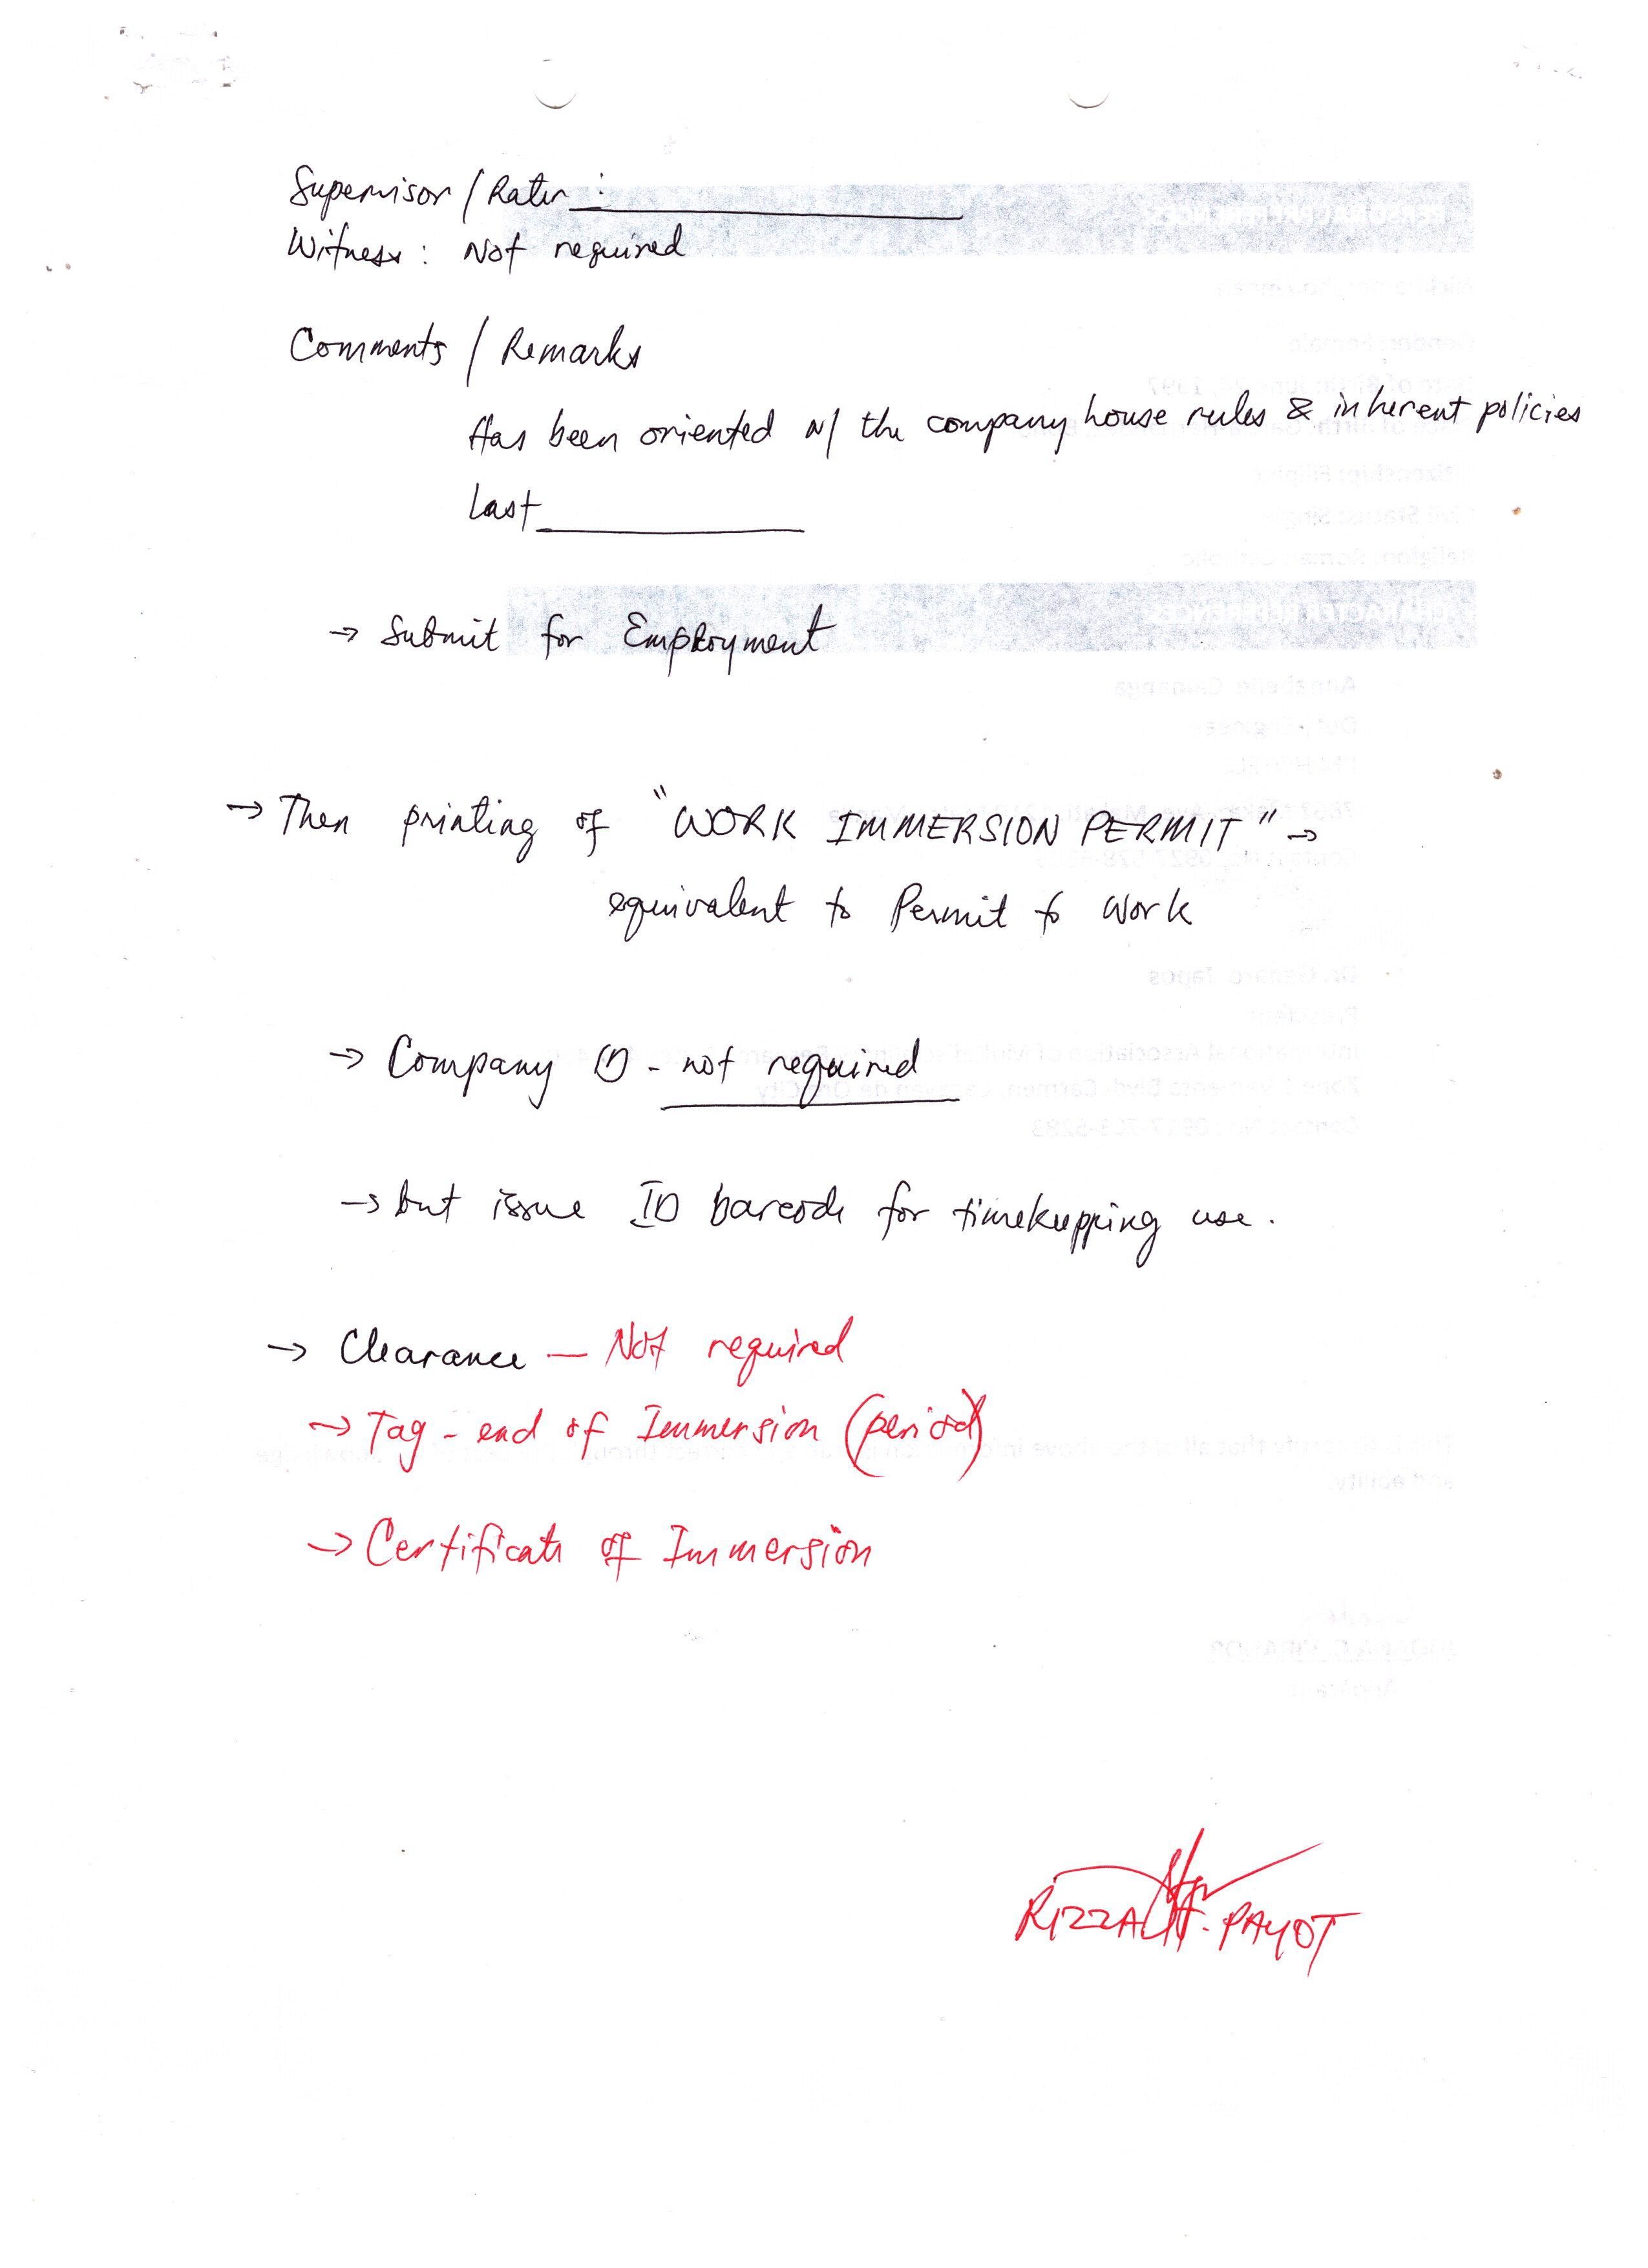 Supervisor / Rater : ____________
Witness : Not required
Comments / Remarks
Has been oriented w/ the company house rules & inherent policies
Last ____________
→ Submit for Employment
→ Then printing of "WORK IMMERSION PERMIT" →
equivalent to Permit to Work
→ Company ID - not required
→ but issue ID barcode for timekeepping use.
→ Clearance — Not required
→ Tag - end of Immersion (period)
→ Certificate of Immersion
PAYOT